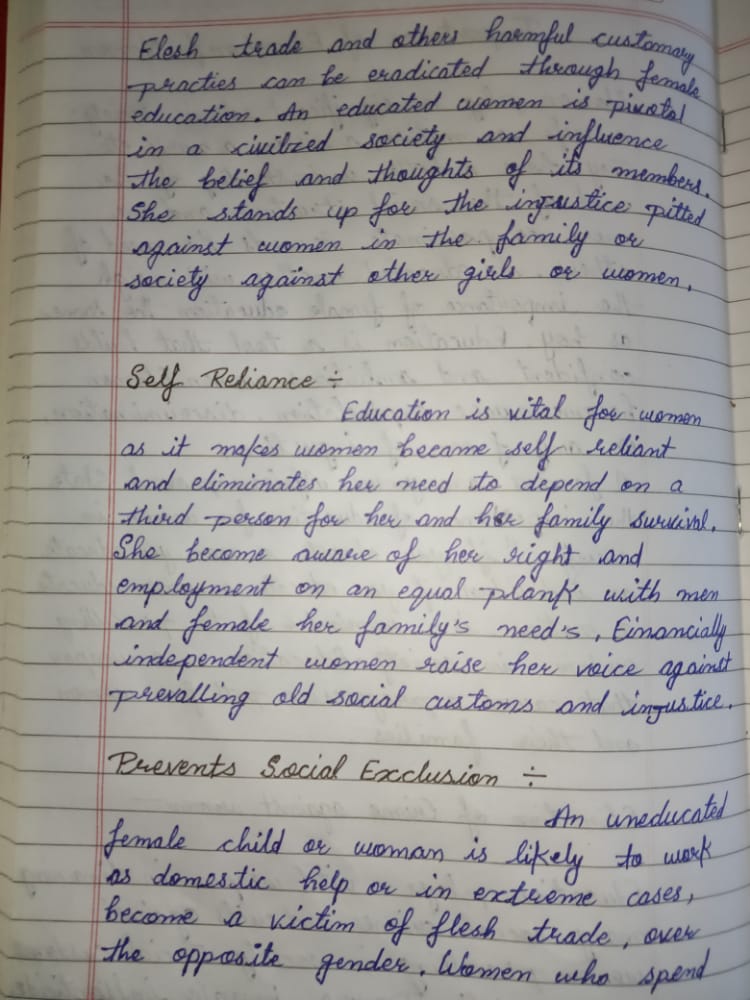 Flesh trade and others harmful customary
practies can be eradicated through female
education. An educated women is pivotal
in a civilized society and influence
the belief and thoughts of its members.
She stands up for the injustice pitted
against women in the family or
society against other girls or women.
Self Reliance ÷
Education is vital for women
as it makes women became self reliant
and eliminates her need to depend on a
third person for her and her family survival.
She become aware of her right and
employment on an equal plank with men
and female her family's need's, Financially
independent women raise her voice against
prevalling old social customs and injustice.
Prevents Social Exclusion ÷
An uneducated
female child or woman is likely to work
as domestic help or in extreme cases,
become a victim of flesh trade, over
the opposite gender. Women who spend